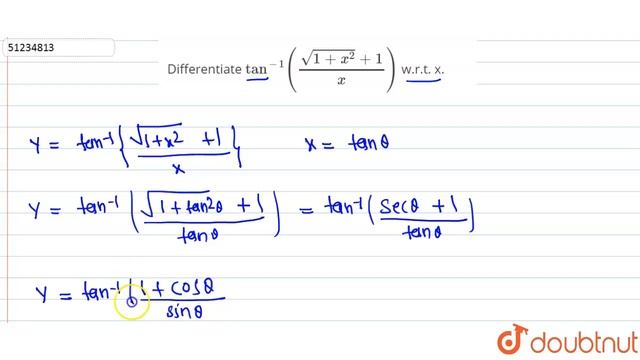 51234813
Differentiate tan⁻¹((√(1+x²)+1)/x) w.r.t. x.
Y = tan⁻¹{(√(1+x²) +1)/x}   x = tanθ
Y = tan⁻¹((√(1+tan²θ) +1)/tanθ) = tan⁻¹((secθ +1)/tanθ)
Y = tan⁻¹((1+cosθ)/sinθ
doubtnut